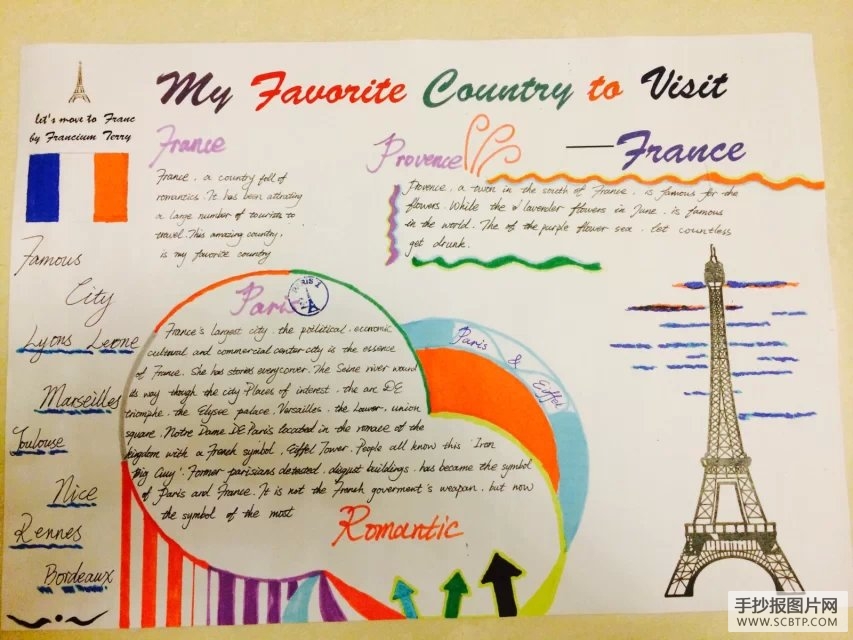 My Favorite Country to Visit
let's move to Franc
by Francium Terry
France
Provence
—France
France, a country full of
romantics. It has been attrating
a large number of tourists to
travel. This amazing country,
is my favorite country
Provence, a twon in the south of France, is famous for the
flowers. While the lavender flowers in June, is famous
in the world. The of the purple flower sea, let countless
get drunk.
Famous
City
Lyons Leone
Marseilles
Toulouse
Nice
Rennes
Bordeaux
Paris
France's largest city, the political, economic
cultural and commercial center city is the essence
of France. She has stories everycorner. The Seine river wound
its way though the city Places of interest, the arc DE
triomphe, the Elysee palace, Versailles, the Louver, union
square, Notre Dame DE Paris located in the of the
kingdom with a French symbol, Eiffel Tower. People all know this 'Iron
Big Guy'. Former parisians detested, disgust buildings, has became the symbol
of Paris and France. It is not the French goverment's weapon, but now
the symbol of the most
Romantic
Paris & Eiffel
手抄报图片网
WWW.SCBTP.COM